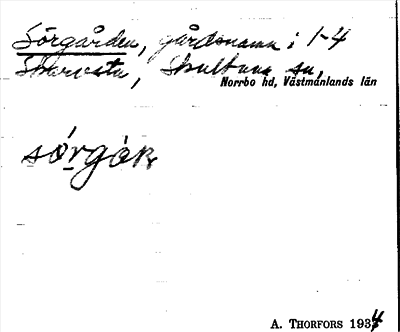 Sörgården, gårdsnamn i 1-4
Skorvsta, Skultuna sn,
Norrbo hd, Västmanlands län
sórgòk
A. THORFORS 1934